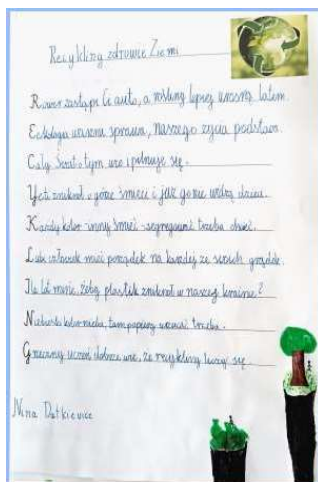 Recykling zdrowie Ziemi
Rower zastąpi Ci auto, a rośliny lepiej urosną latem.
Ekologia ważna sprawa, naszego życia podstawa.
Cały Świat o tym wie i pilnuje się.
Yeti zniknął o górze śmieci i już go nie widzą dzieci.
Każdy kolor inny śmieć - segregować trzeba chcieć.
Lubi człowiek mieć porządek na każdej ze swoich grządek.
Ile lat minie, żeby plastik zniknął w naszej krainie?
Niebieski kolor nieba, tam papiery wrzucać trzeba.
Grzeczny uczeń dobrze wie, że recykling liczy się
Nina Dutkiewicz